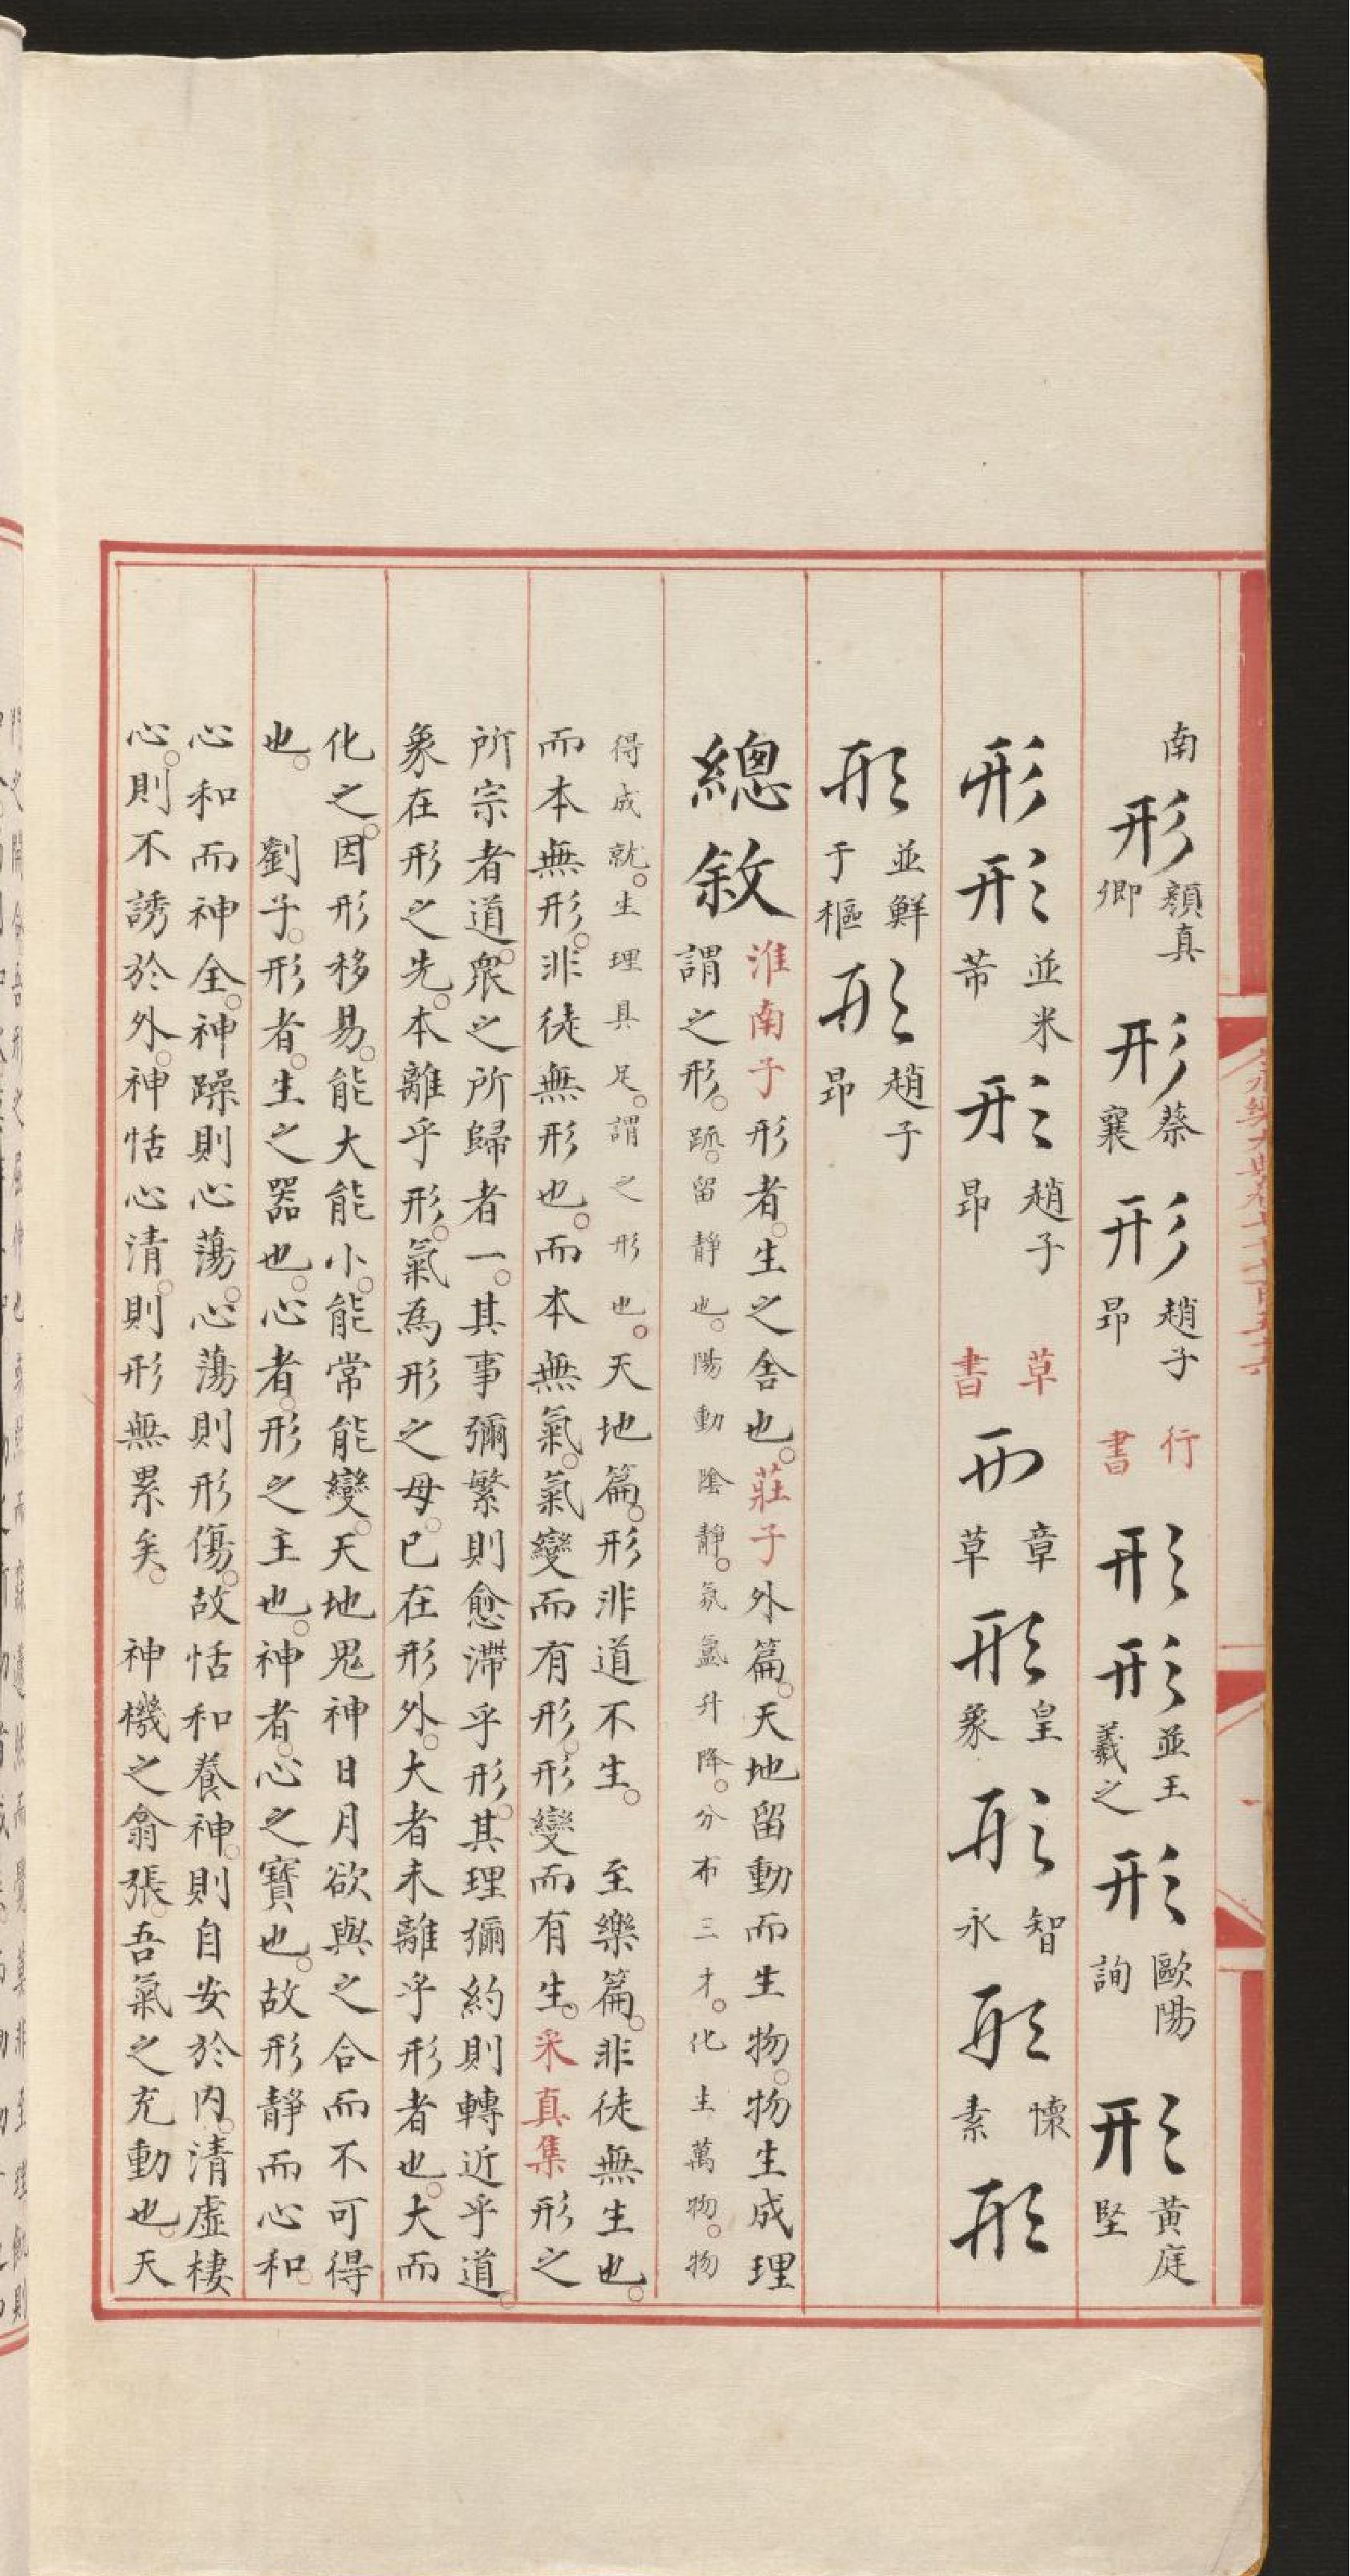 南
形顏真卿 形蔡襄 形趙子昂 行書 形形並王羲之 形歐陽詢 形黃庭堅
形形並米芾 形趙子昂 草書 形章草 形皇象 形智永 形懷素 形
形並鮮于樞 形趙子昂
總敘
淮南子形者。生之舍也。莊子外篇。天地留動而生物。物生成理
謂之形。疏。留靜也。陽動陰靜。氛氳升降。分布三才。化生萬物。物
得成就。生理具足。謂之形也。天地篇。形非道不生。 至樂篇。非徒無生也。
而本無形。非徒無形也。而本無氣。氣變而有形。形變而有生。采真集形之
所宗者道。衆之所歸者一。其事彌繁則愈滯乎形。其理彌約則轉近乎道。
象在形之先。本離乎形。氣為形之母。已在形外。大者未離乎形者也。大而
化之。因形移易。能大能小。能常能變。天地鬼神日月欲與之合而不可得
也。 劉子。形者。生之器也。心者。形之主也。神者。心之寶也。故形靜而心和。
心和而神全。神躁則心蕩。心蕩則形傷。故恬和養神。則自安於內。清虛棲
心。則不誘於外。神恬心清。則形無累矣。 神機之翕張。吾氣之充動也。天